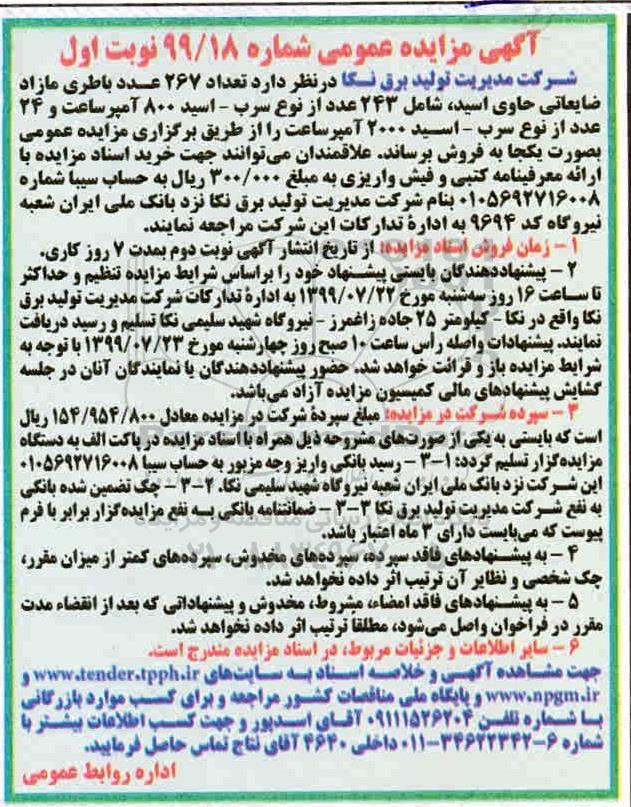 آگهی مزایده عمومی شماره ۹۹/۱۸ نوبت اول
شرکت مدیریت تولید برق نکا درنظر دارد تعداد ۲۶۷ عدد باطری مازاد
ضایعاتی حاوی اسید، شامل ۲۴۳ عدد از نوع سرب - اسید ۸۰۰ آمپرساعت و ۲۴
عدد از نوع سرب - اسید ۲۰۰۰ آمپرساعت را از طریق برگزاری مزایده عمومی
بصورت یکجا به فروش برساند. علاقمندان می‌توانند جهت خرید اسناد مزایده با
ارائه معرفینامه کتبی و فیش واریزی به مبلغ ۳۰۰/۰۰۰ ریال به حساب سیبا شماره
۰۱۰۵۶۹۲۷۱۶۰۰۸ بنام شرکت مدیریت تولید برق نکا نزد بانک ملی ایران شعبه
نیروگاه کد ۹۶۹۴ به ادارهٔ تدارکات این شرکت مراجعه نمایند.
۱ - زمان فروش اسناد مزایده: از تاریخ انتشار آگهی نوبت دوم بمدت ۷ روز کاری.
۲ - پیشنهاددهندگان بایستی پیشنهاد خود را براساس شرایط مزایده تنظیم و حداکثر
تا ساعت ۱۶ روز سه‌شنبه مورخ ۱۳۹۹/۰۷/۲۲ به ادارهٔ تدارکات شرکت مدیریت تولید برق
نکا واقع در نکا - کیلومتر ۲۵ جاده زاغمرز - نیروگاه شهید سلیمی نکا تسلیم و رسید دریافت
نمایند. پیشنهادات واصله رأس ساعت ۱۰ صبح روز چهارشنبه مورخ ۱۳۹۹/۰۷/۲۳ با توجه به
شرایط مزایده باز و قرائت خواهد شد. حضور پیشنهاددهندگان یا نمایندگان آنان در جلسه
گشایش پیشنهادهای مالی کمیسیون مزایده آزاد می‌باشد.
۳ - سپرده شرکت در مزایده: مبلغ سپردهٔ شرکت در مزایده معادل ۱۵۴/۹۵۴/۸۰۰ ریال
است که بایستی به یکی از صورت‌های مشروحه ذیل همراه با اسناد مزایده در پاکت الف به دستگاه
مزایده‌گزار تسلیم گردد: ۱-۳ - رسید بانکی واریز وجه مزبور به حساب سیبا ۰۱۰۵۶۹۲۷۱۶۰۰۸
این شرکت نزد بانک ملی ایران شعبه نیروگاه شهید سلیمی نکا. ۲-۳ - چک تضمین شده بانکی
به نفع شرکت مدیریت تولید برق نکا ۳-۳ - ضمانتنامه بانکی به نفع مزایده‌گزار برابر با فرم
پیوست که می‌بایست دارای ۳ ماه اعتبار باشد.
۴ - به پیشنهادهای فاقد سپرده، سپرده‌های مخدوش، سپرده‌های کمتر از میزان مقرر،
چک شخصی و نظایر آن ترتیب اثر داده نخواهد شد.
۵ - به پیشنهادهای فاقد امضاء، مشروط، مخدوش و پیشنهاداتی که بعد از انقضاء مدت
مقرر در فراخوان واصل می‌شود، مطلقا ترتیب اثر داده نخواهد شد.
۶ - سایر اطلاعات و جزئیات مربوط، در اسناد مزایده مندرج است.
جهت مشاهده آگهی و خلاصه اسناد به سایت‌های www.tender.tpph.ir و
www.npgm.ir و پایگاه ملی مناقصات کشور مراجعه و برای کسب موارد بازرگانی
با شماره تلفن ۰۹۱۱۱۵۲۶۲۰۴ آقای اسدپور و جهت کسب اطلاعات بیشتر با
شماره ۶-۳۴۶۲۲۳۴۲-۰۱۱ داخلی ۴۶۴۰ آقای نتاج تماس حاصل فرمایید.
اداره روابط عمومی